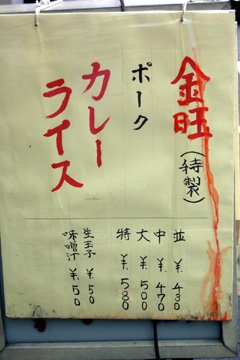 金旺
(特製)
ポーク
カレー
ライス
並 ¥.430
中 ¥.470
大 ¥.500
特 ¥.580
生玉子 ¥.50
味噌汁 ¥.50